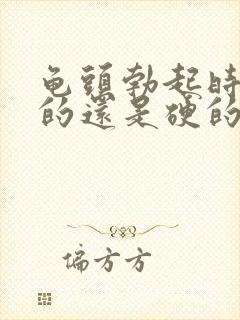 龟頭勃起時
的還是硬的
偏方方